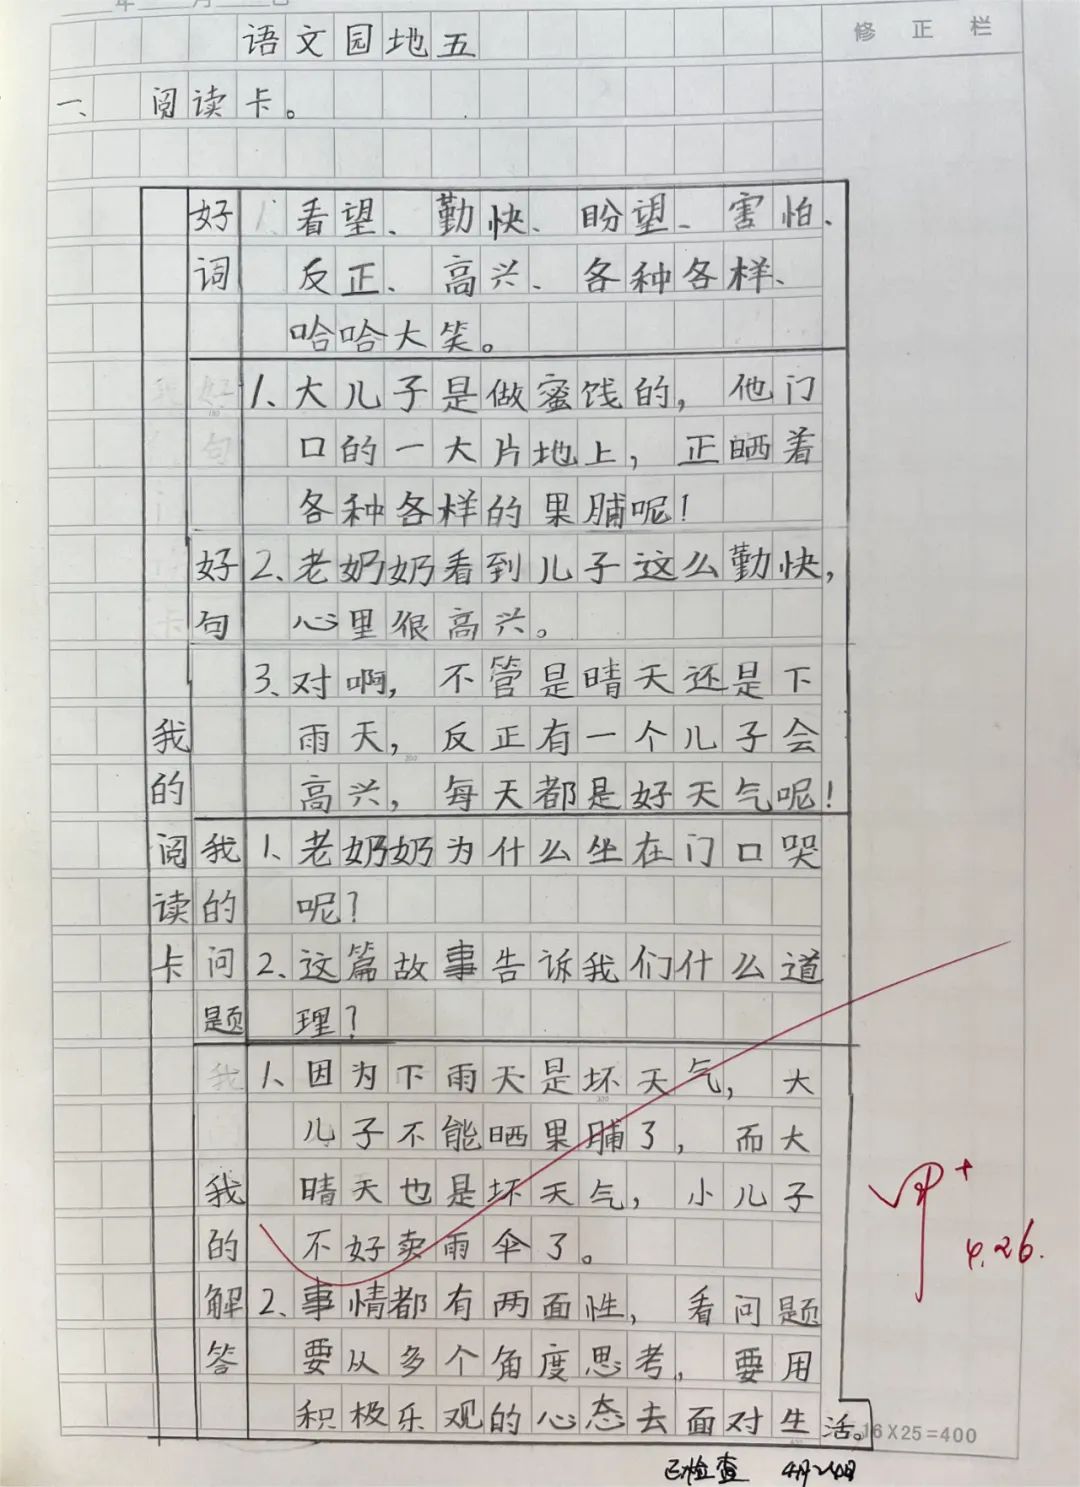 年 月 日
修正栏
语文园地五
一、 阅读卡。
我的阅读卡
好词
1. 看望、勤快、盼望、害怕、
反正、高兴、各种各样、
哈哈大笑。
好句
1、大儿子是做蜜饯的，他门
口的一大片地上，正晒着
各种各样的果脯呢！
2、老奶奶看到儿子这么勤快，
心里很高兴。
3、对啊，不管是晴天还是下
雨天，反正有一个儿子会
高兴，每天都是好天气呢！
我的问题
1、老奶奶为什么坐在门口哭
呢？
2、这篇故事告诉我们什么道
理？
我的解答
1、因为下雨天是坏天气，大
儿子不能晒果脯了，而大
晴天也是坏天气，小儿子
不好卖雨伞了。
2、事情都有两面性，看问题
要从多个角度思考，要用
积极乐观的心态去面对生活。
甲+
4.26.
16X25=400
已检查 4月26日